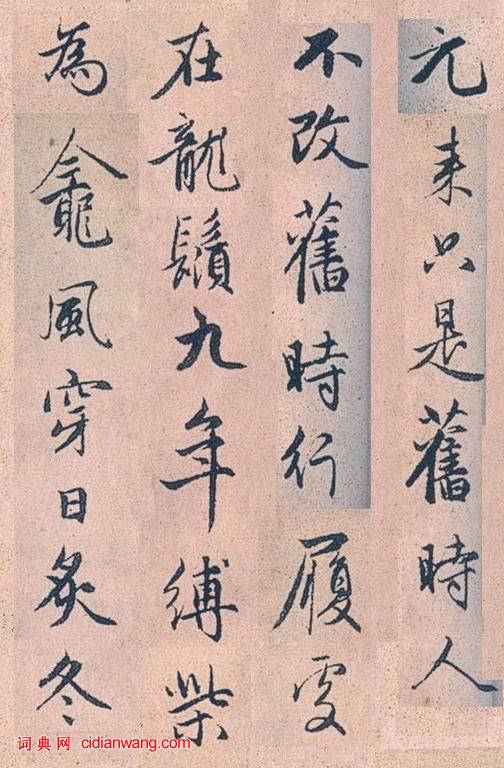 元来只是舊時人
不改舊時行履處
在龍鬚九年縛柴
為龕風穿日炙冬
词典网 cidianwang.com